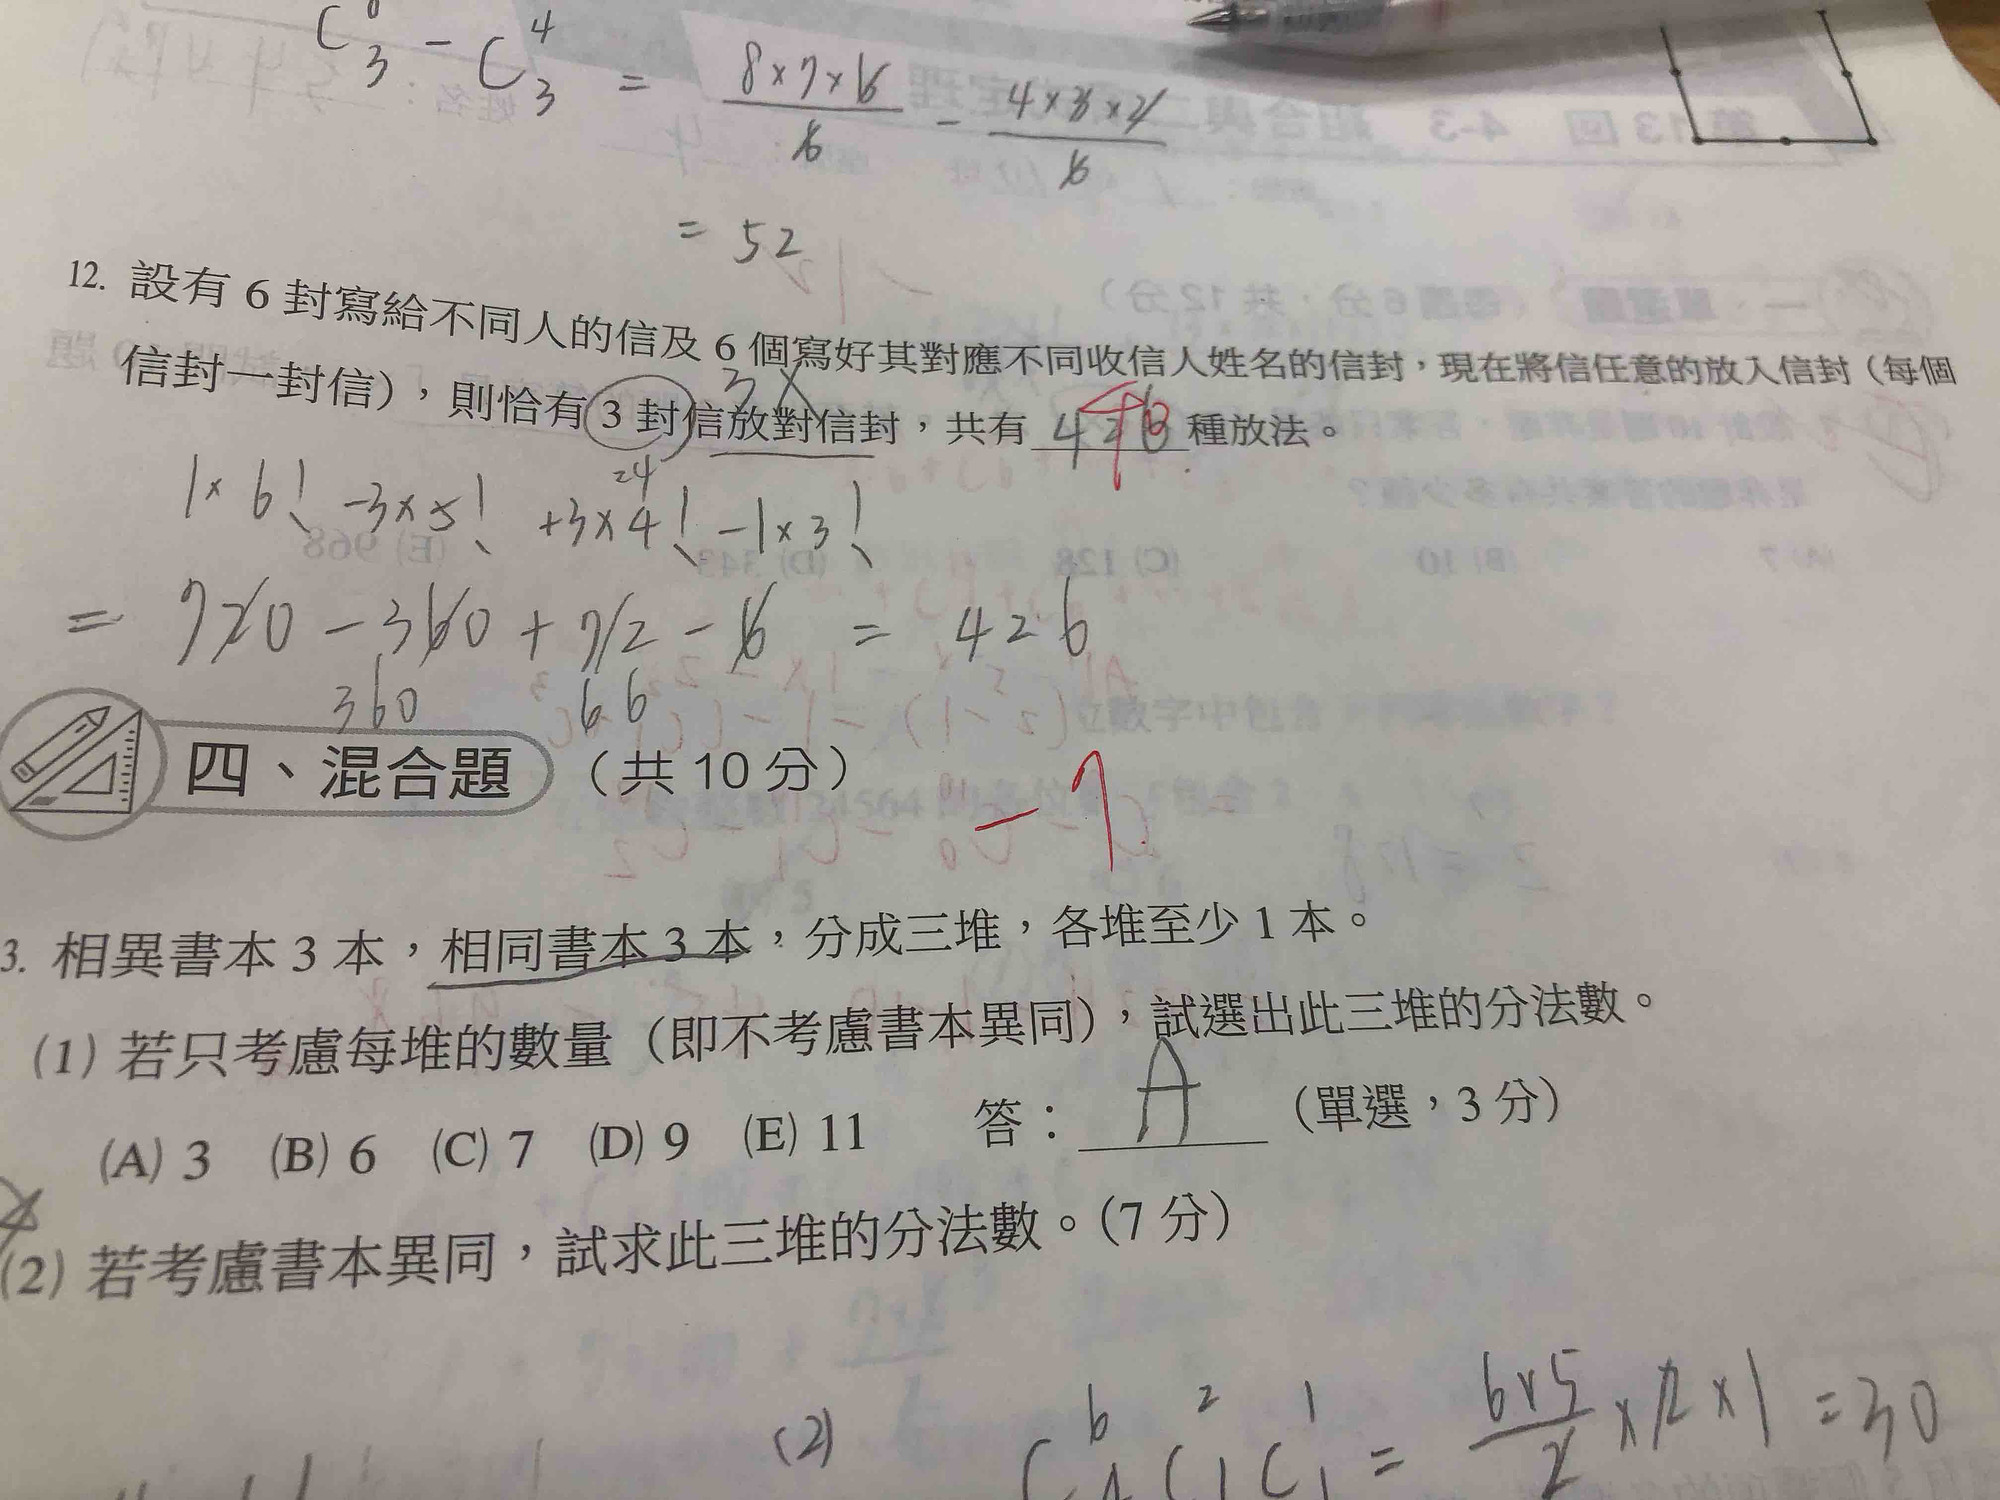 C 3 − C 4 3 = 8×7×6 / 6 − 4×3×2 / 6
= 52
12. 設有 6 封寫給不同人的信及 6 個寫好其對應不同收信人姓名的信封，現在將信任意的放入信封（每個
信封一封信），則恰有 3 封信放對信封，共有 426 40 種放法。
3 X
24
1×6! −3×5! +3×4! −1×3!
= 720 − 360 + 72 − 6 = 426
360 66
四、混合題（共 10 分）
−7
3. 相異書本 3 本，相同書本 3 本，分成三堆，各堆至少 1 本。
(1) 若只考慮每堆的數量（即不考慮書本異同），試選出此三堆的分法數。
(A) 3 (B) 6 (C) 7 (D) 9 (E) 11 答： A （單選，3 分）
(2) 若考慮書本異同，試求此三堆的分法數。（7 分）
(2) C 6 4 C 2 1 C 1 1 = 6×5 / 2 × 2 × 1 = 30